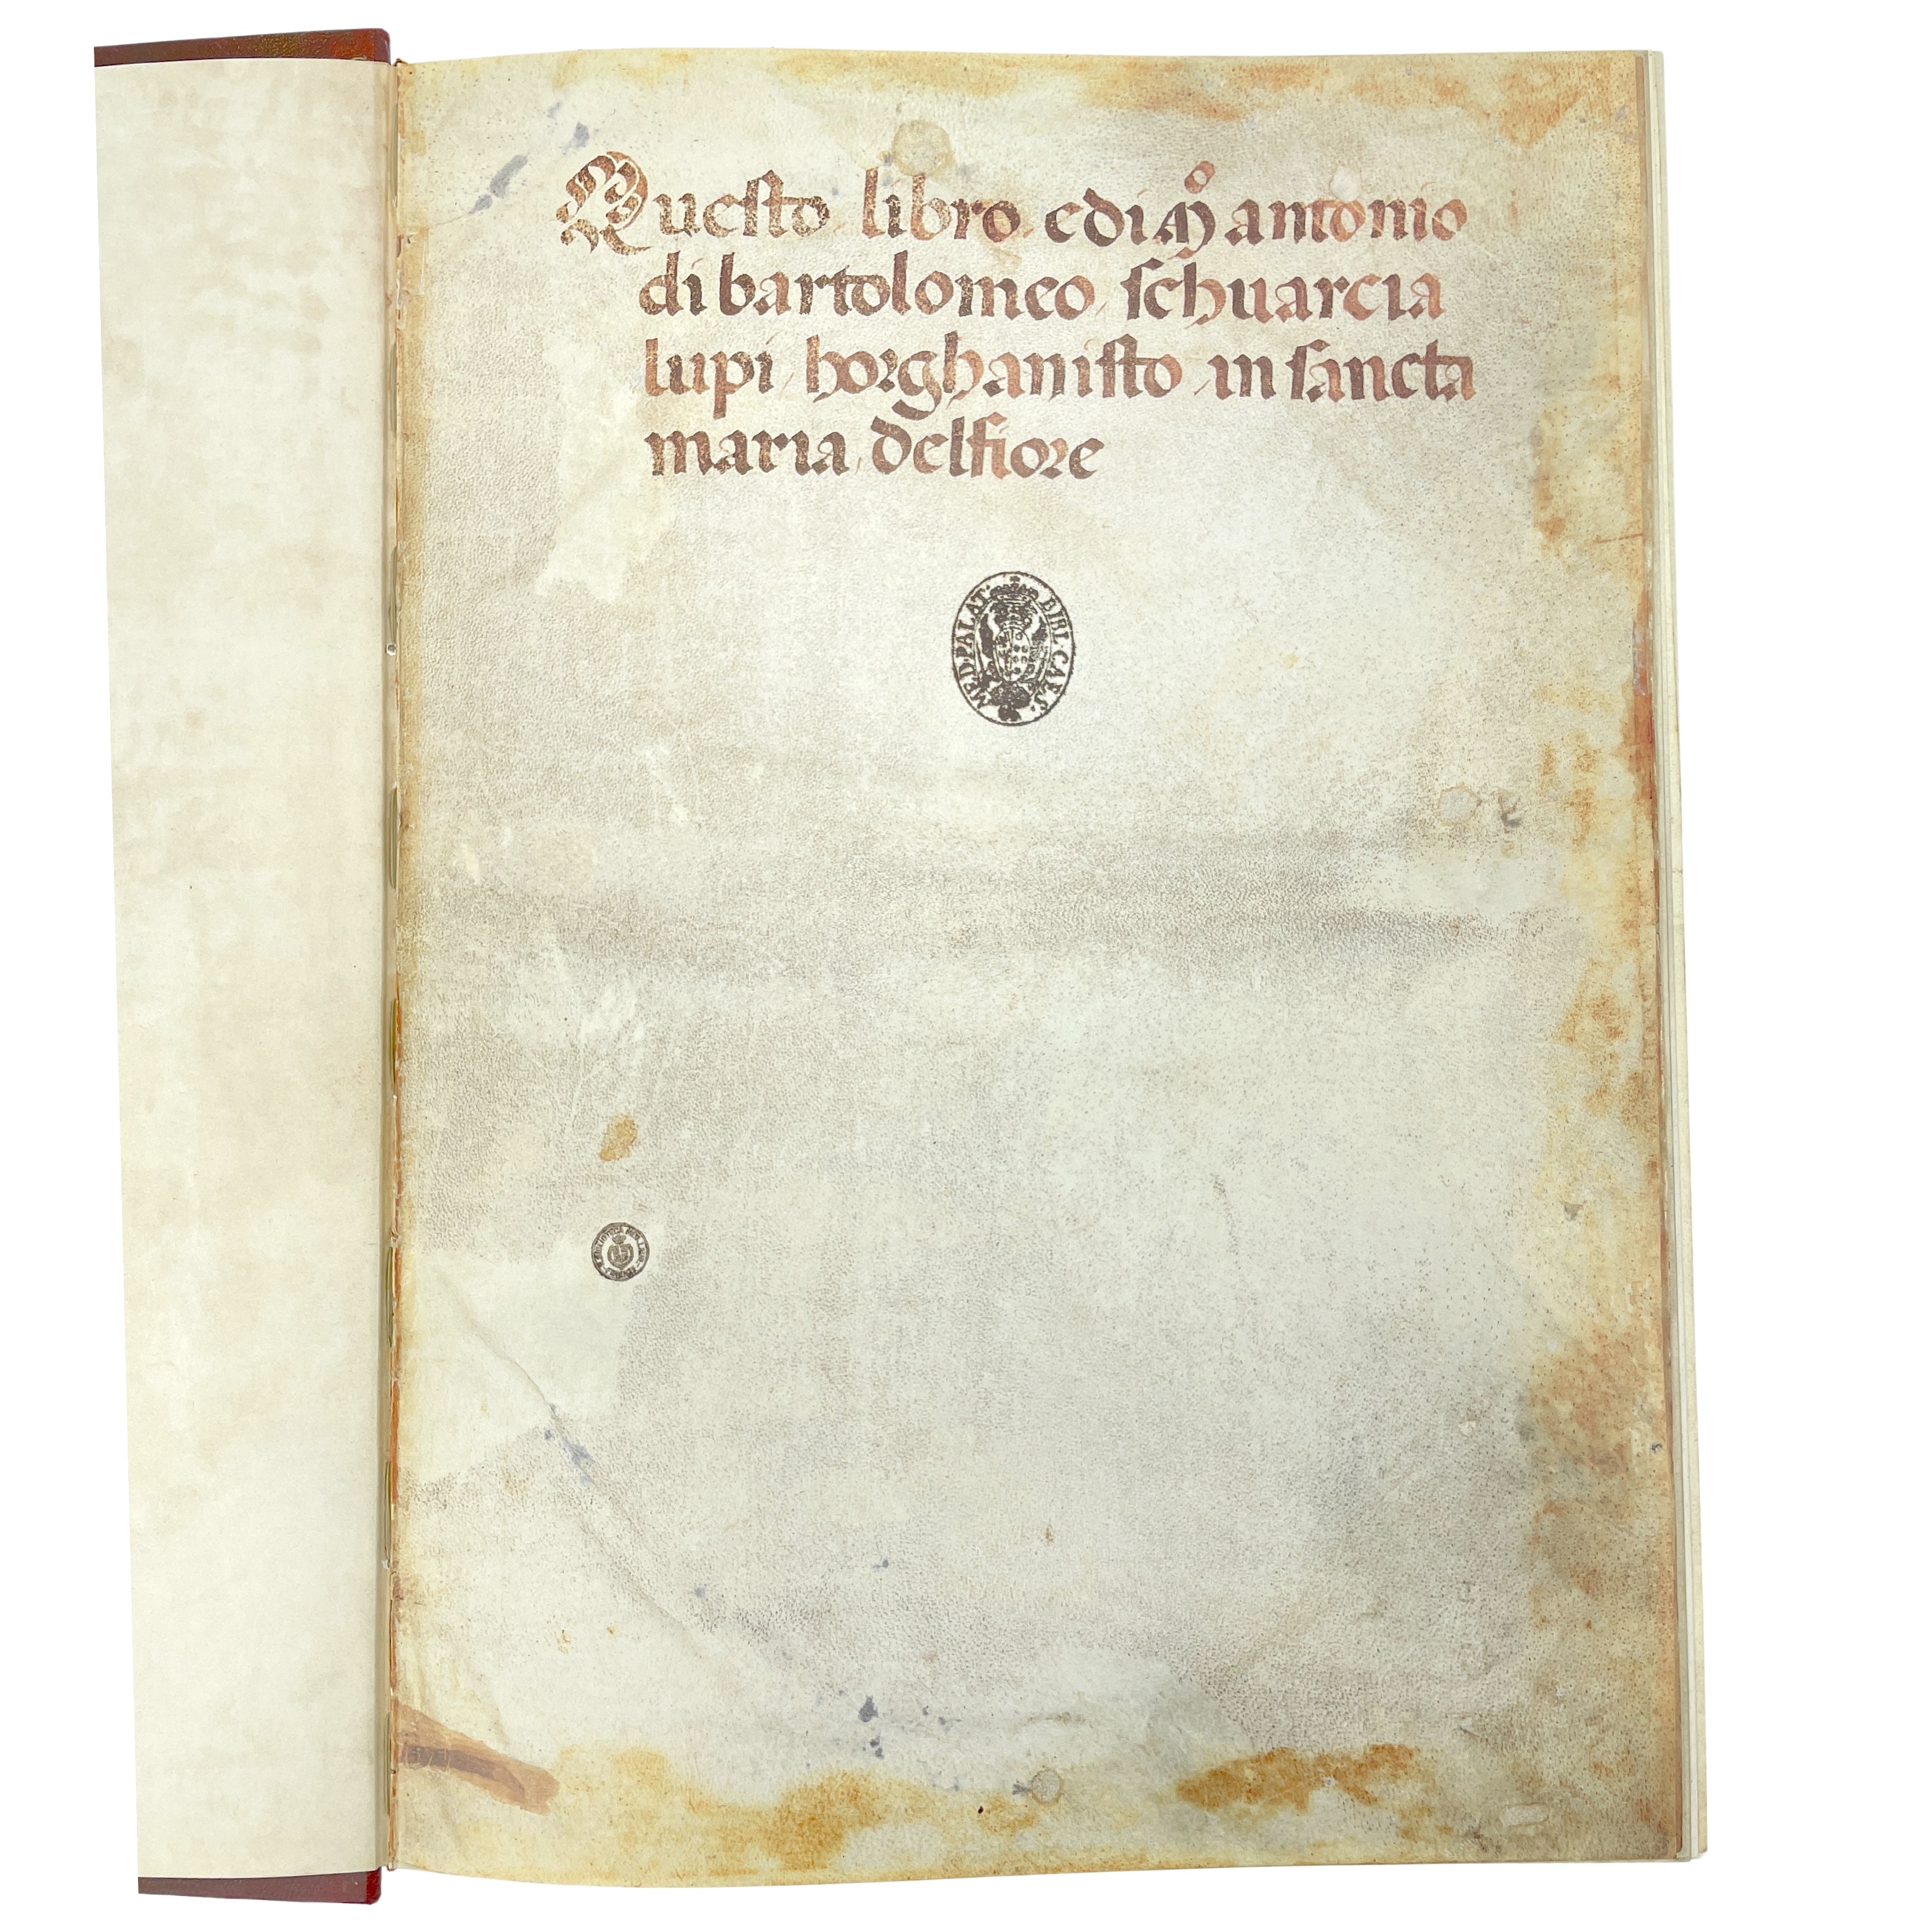 Questo libro edi Mº antonio
di bartolomeo schuarcia
lupi horghanisto in sancta
maria delfiore
MED·PALAT· BIBL·CAES·